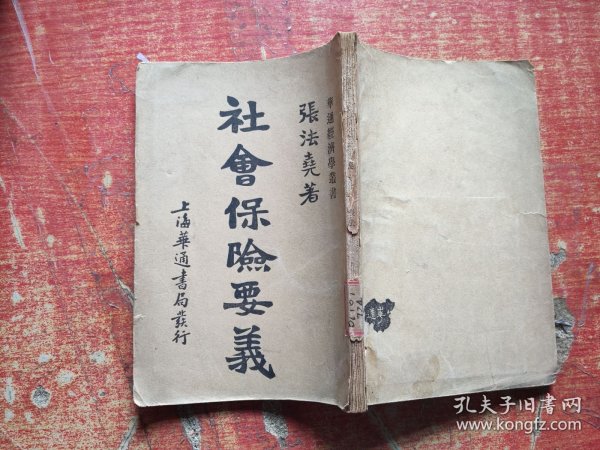 華通經濟學叢書
張法堯著
社會保險要義
上海華通書局發行
孔夫子旧书网
kongfz.com